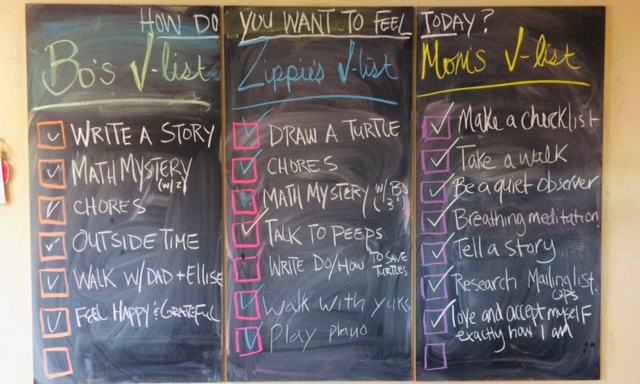 HOW DO YOU WANT TO FEEL TODAY?
Bo's √-list
WRITE A STORY
MATH MYSTERY
(w/Z)
CHORES
OUTSIDE TIME
WALK W/DAD + Ellise
FEEL HAPPY & GRATEFUL
Zippie's √-list
DRAW A TURTLE
CHORES
MATH MYSTERY w/Bo
TALK TO PEEPS
WRITE DO/HOW TO SAVE
TURTLES
Walk with
Play piano
Mom's √-list
Make a checklist
Take a walk
Be a quiet observer
Breathing meditation
Tell a story
Research Mailing list
ops
love and accept myself
exactly how I am